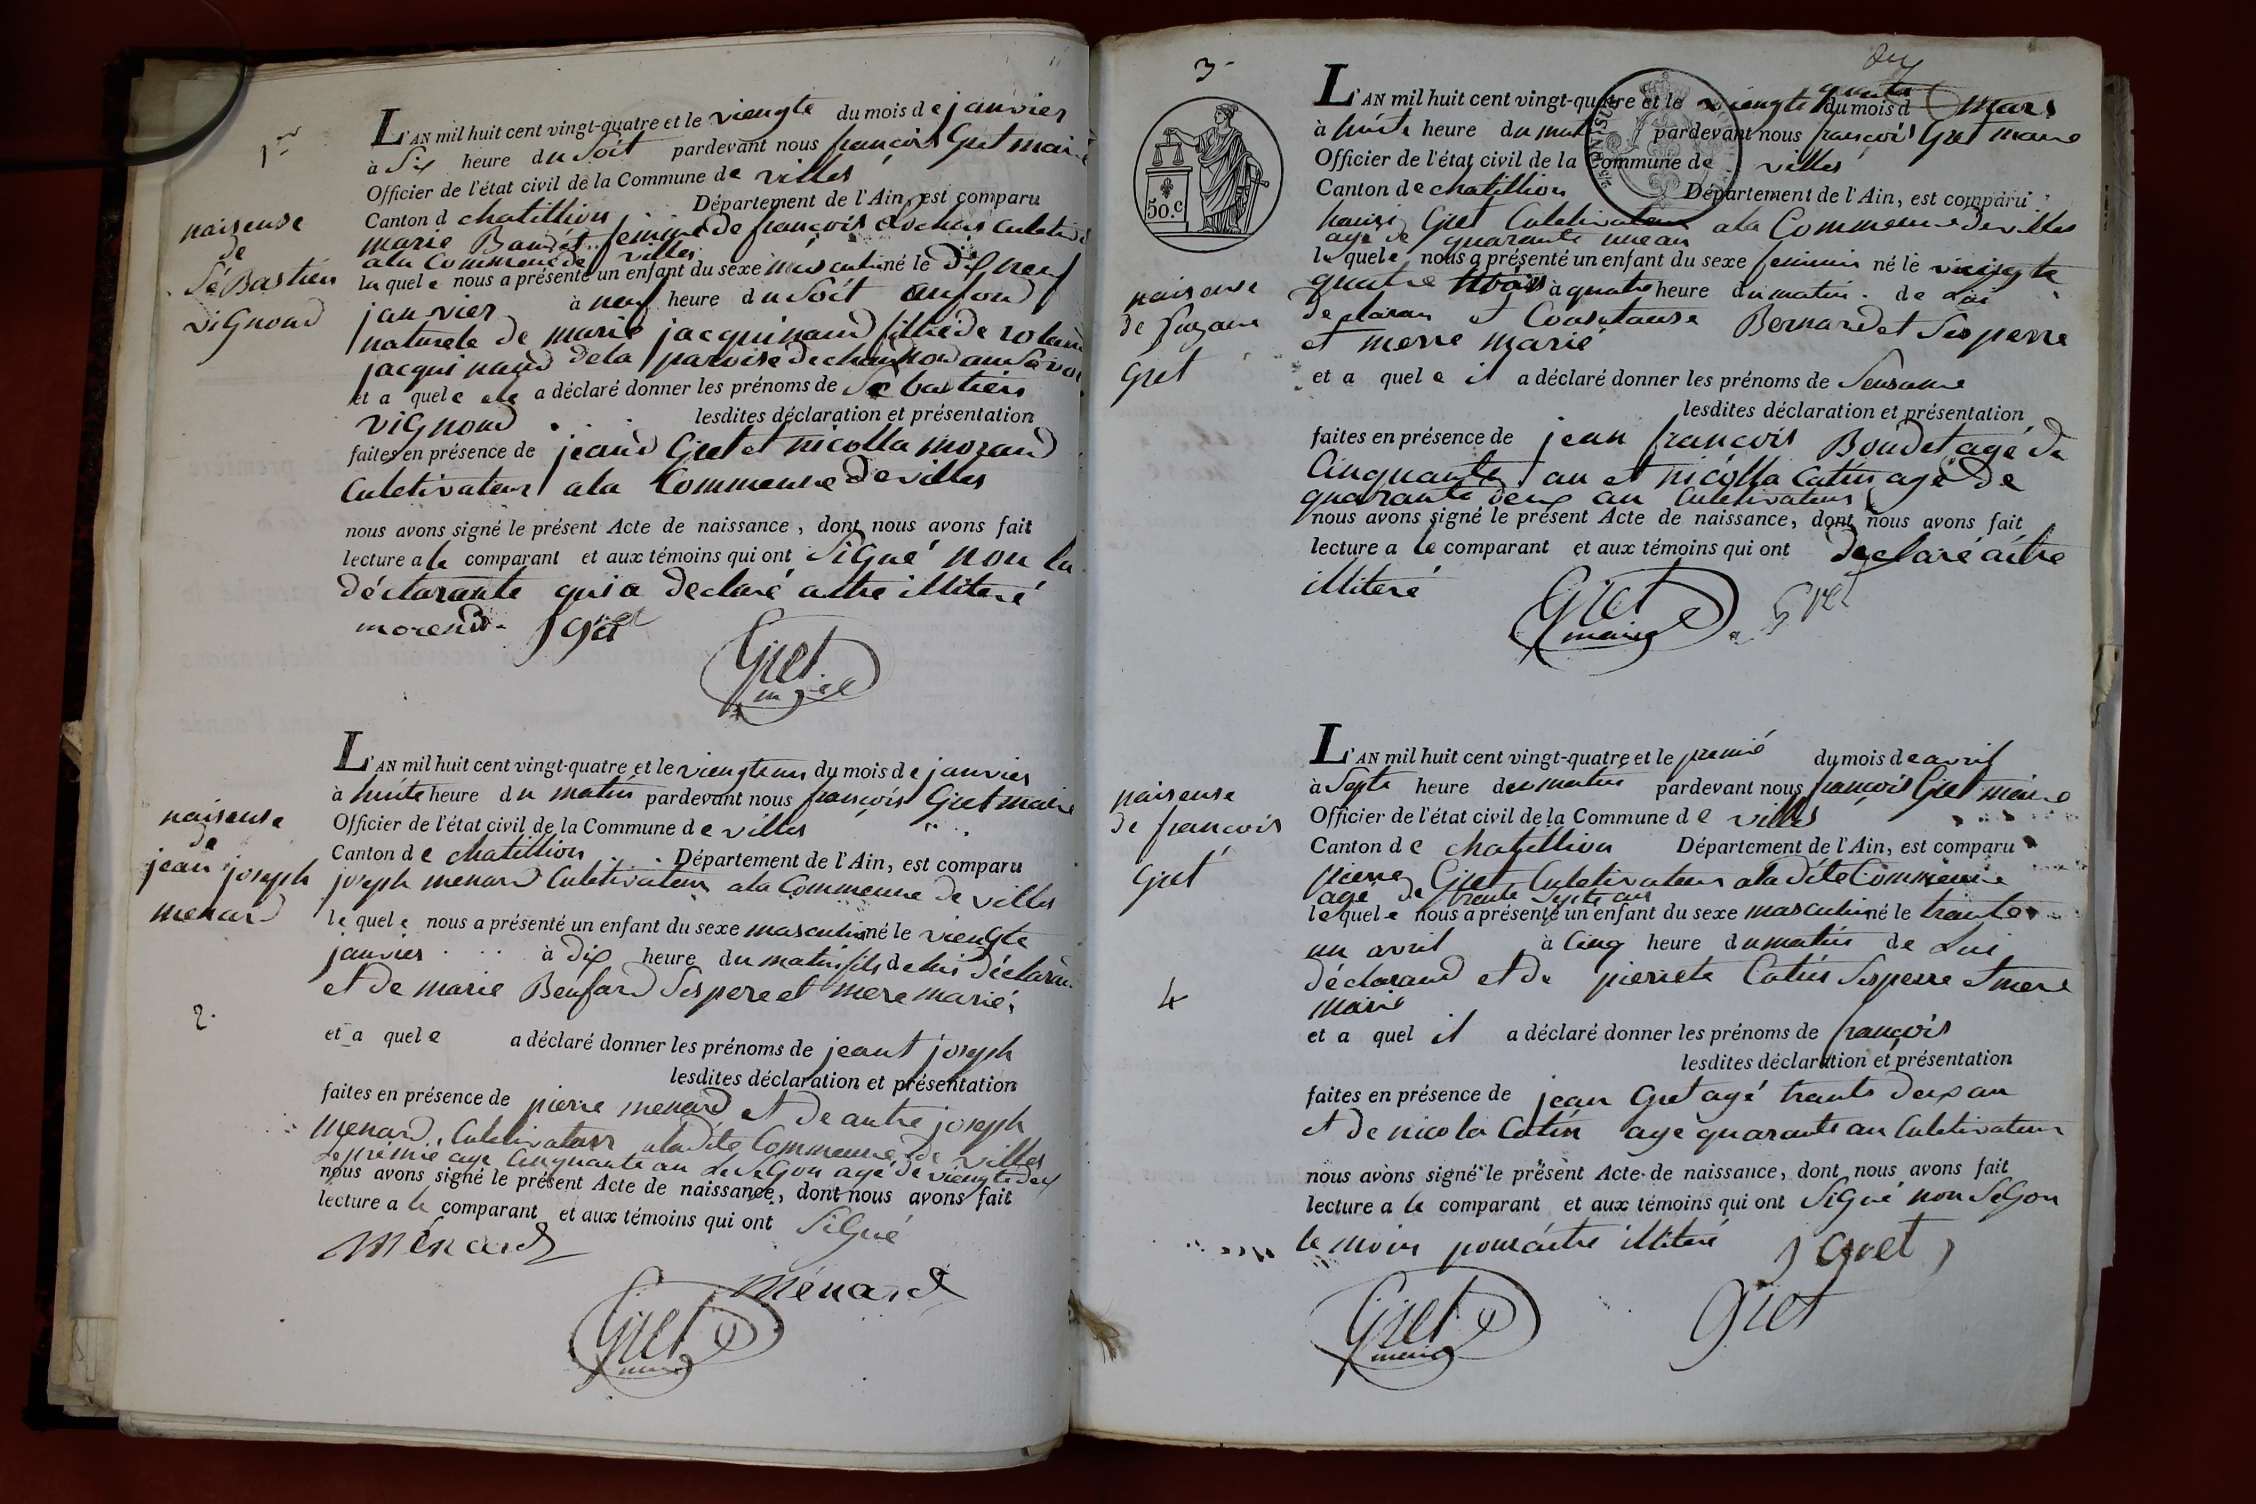 1er
naisense
de
Sébastien
vignond
L'AN mil huit cent vingt-quatre et le viengte du mois de janvier
à Six heure du Soit pardevant nous françois Gret maire
Officier de l'état civil de la Commune de villes
Canton d chatillion Département de l'Ain, est comparu
marie Baudet femme de françois cultive
a la Commeune de villes
la quele nous a présenté un enfant du sexe masculin né le dix neuf
janvier à neuf heure du Soit anfond
naturele de marie jacquinaud filliede roland
jacquinaud dela paroise de
et a quele ele a déclaré donner les prénoms de Sebastien
viGnond lesdites déclaration et présentation
faites en présence de jeand Gret et nicolla morand
Culetivateur a la Commeune de villes
nous avons signé le présent Acte de naissance, dont nous avons fait
lecture a la comparant et aux témoins qui ont SiGné non la
déclarante qui a declaré aitre illiteré
morend j gret
Gret
maire
naisense
de
jean joseph
menard
2.
L'AN mil huit cent vingt-quatre et le viengteun du mois de janvier
à huite heure du matin pardevant nous françois Gret maire
Officier de l'état civil de la Commune de villes
Canton de chatillion Département de l'Ain, est comparu
joseph menard Culetivateur a la Commeune de villes
le quele nous a présenté un enfant du sexe masculin né le viengte
janvier à dix heure du matin fils de lui déclaran
et de marie Benfard Ses pere et mere marié
et a quele a déclaré donner les prénoms de jeant joseph
lesdites déclaration et présentation
faites en présence de pierre menard et de autre joseph
menard, Culetivateur a la dite Commeune de villes
Le premie age Cinquante an Le SeGon agé de viengte deux
nous avons signé le présent Acte de naissance, dont nous avons fait
lecture a le comparant et aux témoins qui ont SiGné
Ménard
Ménard
Gret
maire
3
50.c
naisense
de Suzane
Gret
L'AN mil huit cent vingt-quatre et le viengte quatre du mois d mars
à huite heure du matin pardevant nous françois Gret maire
Officier de l'état civil de la Commune de villes
Canton de chatillion Département de l'Ain, est comparu
Gret Culetivateur a la Commeune de villes
age de quarante une an
le quele nous a présenté un enfant du sexe feminin né le viengte
quatre mars à quatre heure du matin de Lui
declaran et Consetanse Bernard et Ses perre
et merre marié
et a quele il a déclaré donner les prénoms de Sensane
lesdites déclaration et présentation
faites en présence de jean françois Boudet agé de
Cinquante an et nicolla Catin agé de
quarante deux an Culetivateur
nous avons signé le présent Acte de naissance, dont nous avons fait
lecture a le comparant et aux témoins qui ont declaré aitre
illiteré
Gret
maire
Gret
naisense
de françois
Gret
4
L'AN mil huit cent vingt-quatre et le premié du mois de avril
à Septe heure du matin pardevant nous françois Gret maire
Officier de l'état civil de la Commune de villes
Canton de chatillion Département de l'Ain, est comparu
pierre Gret Culetivateur a la dite Commeune
agé de trente Septe an
le quele nous a présenté un enfant du sexe masculin né le trante
un avril à Cinq heure du matin de Lui
déclarand et de pierrete Catin Ses perre et mere
marié
et a quel il a déclaré donner les prénoms de françois
lesdites déclaration et présentation
faites en présence de jean Gret agé trante deux an
et de nicola Catin age quarante an Culetivateur
nous avons signé le présent Acte de naissance, dont nous avons fait
lecture a le comparant et aux témoins qui ont SiGné non SeGon
te moin pour aitre illiteré j Gret
Gret
maire
Gret